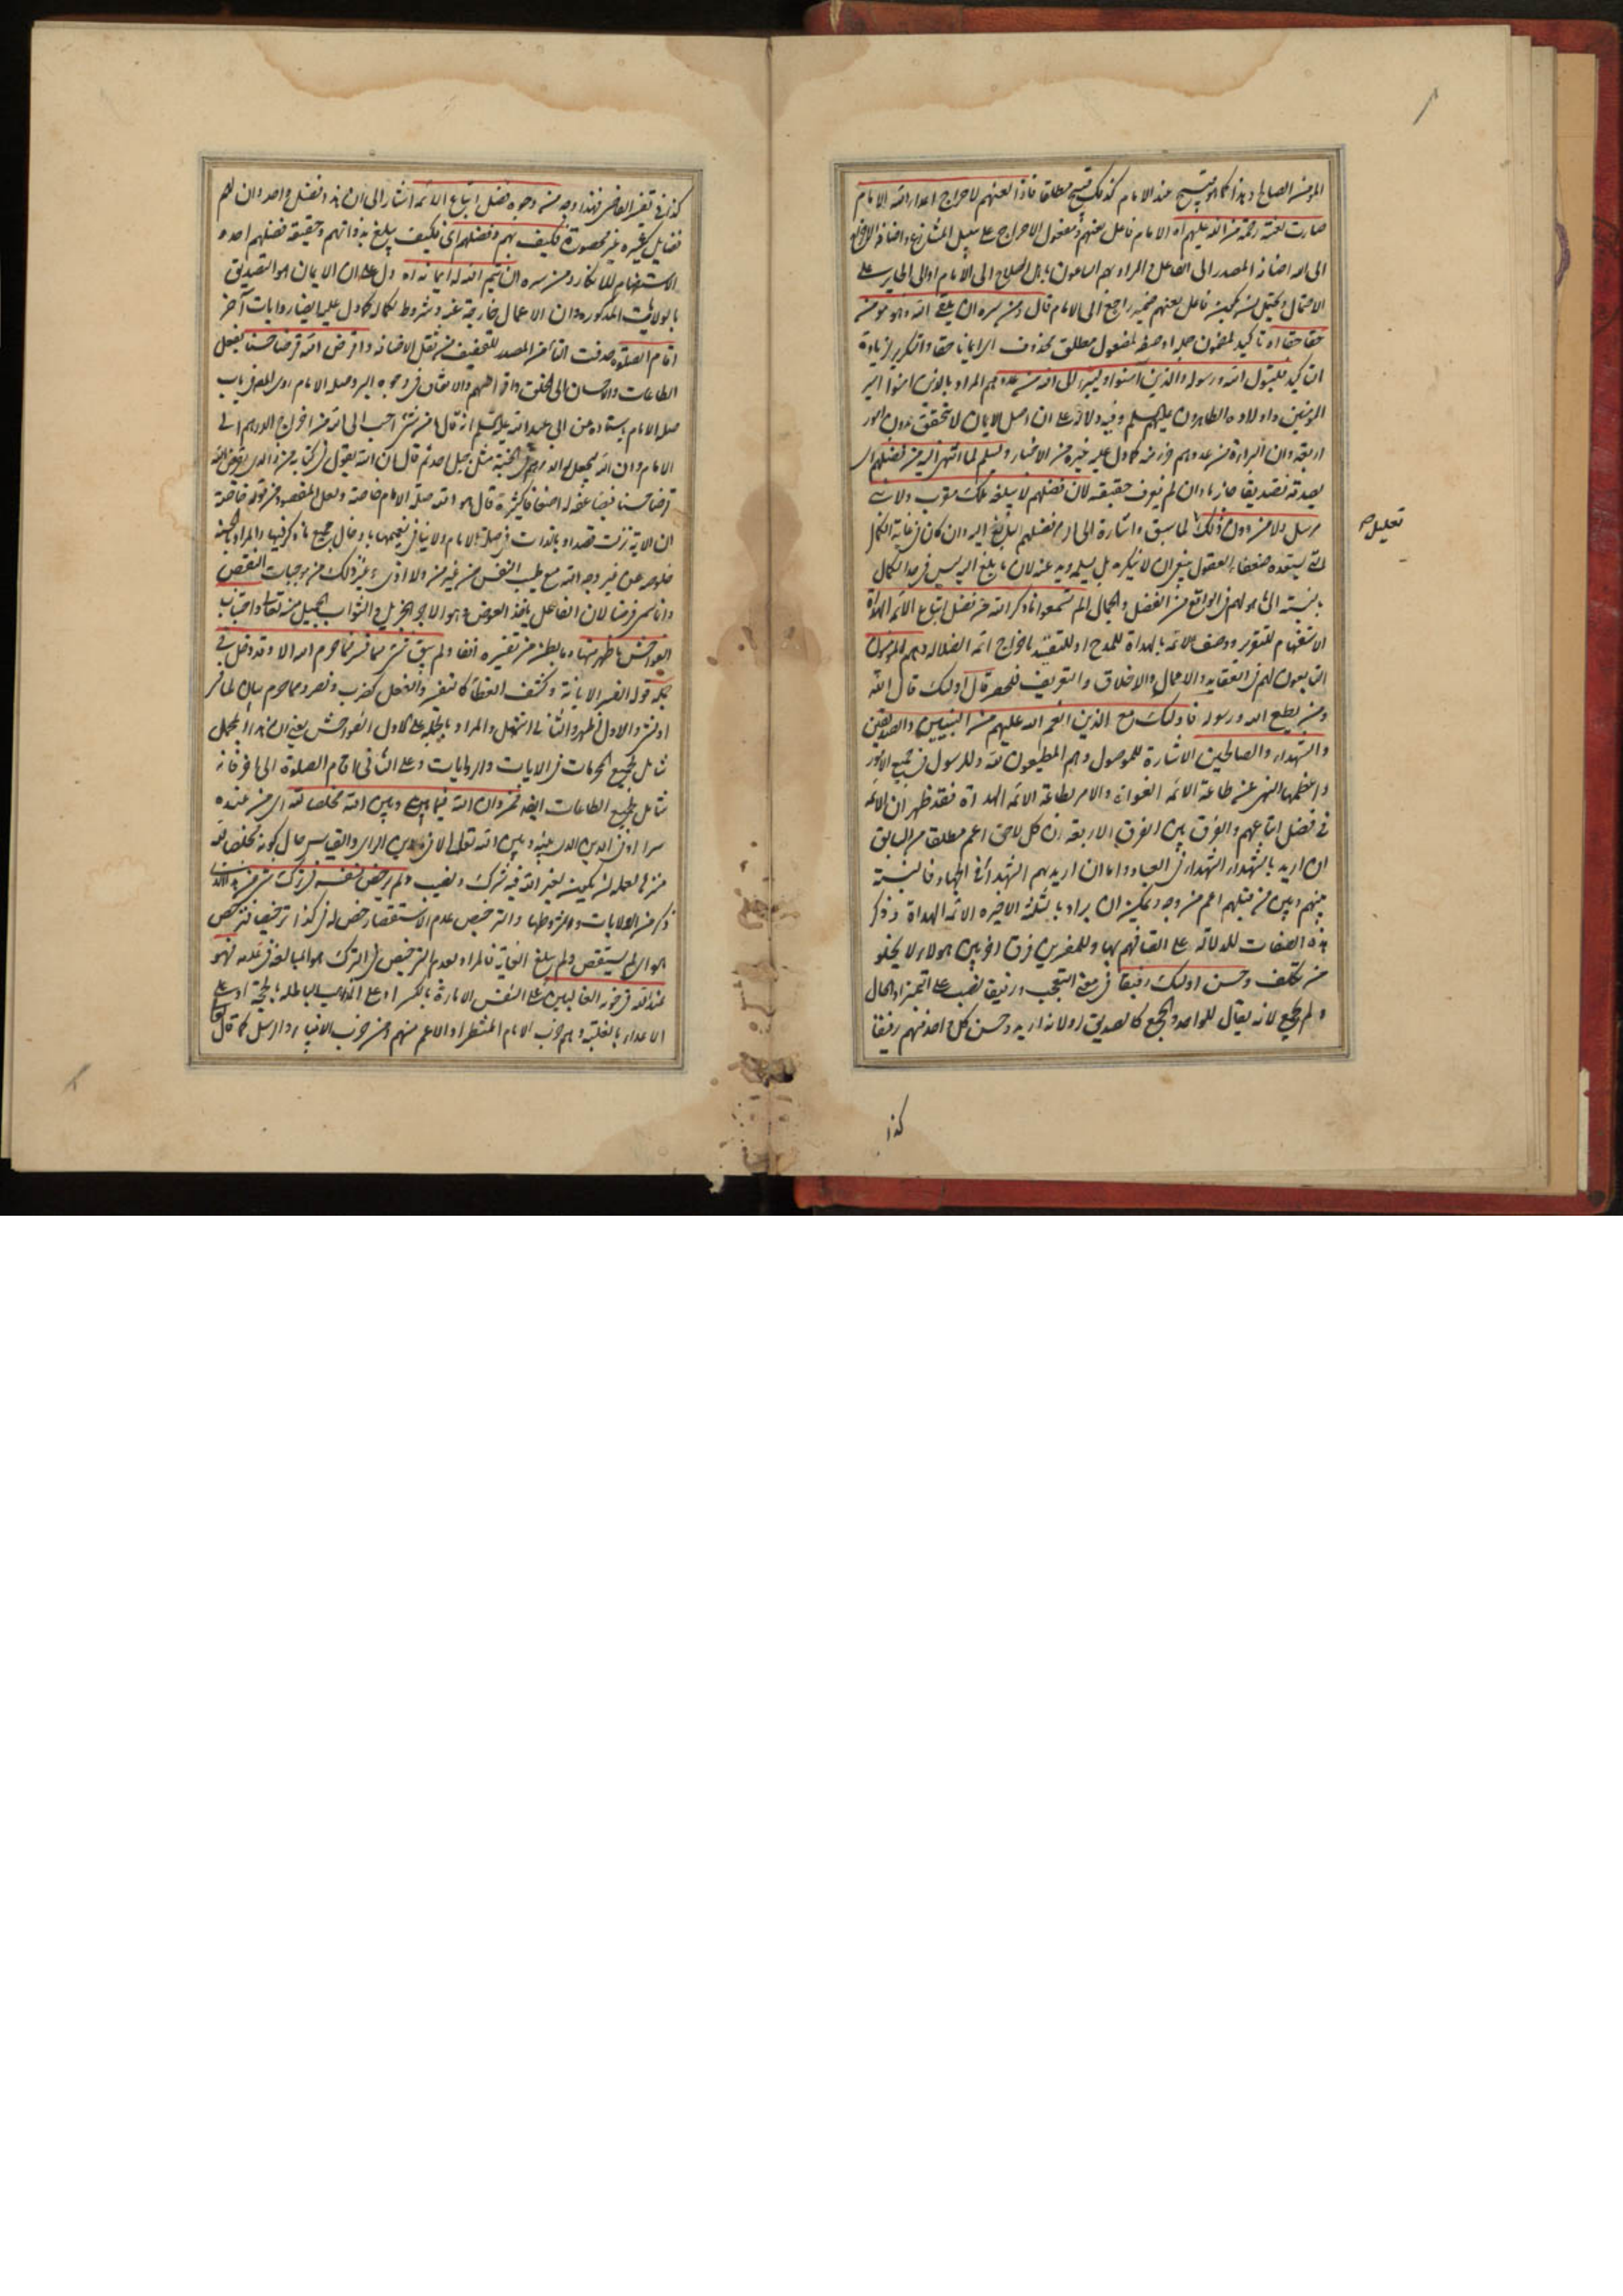 المؤمن الصالح وهذا كما هو قبيح عند الامام كذلك قبيح مطلقا فاذا لعنهم لاحراج اعداء الله الامام
صارت لعنته رحمة من الله عليهم اه الامام فاعل لعنهم ومفعول الاحراج على سبيل التنازع واضافة الاحراج
الى الله اضافة المصدر الى الفاعل والمراد بهم الساعون باهل الصلاح الى الامام اولى الجاير على
الاحتمال ويحتمل ان يكون فاعل لعنهم ضمير راجع الى الامام قال ومن سره ان يلقى الله وهو مؤمن
حقا حقا اه تاكيد لمضمون جملة او صفة لمفعول مطلق محذوف اى ايمانا حقا والتكرير لزيادة
التاكيد فليتول الله ورسوله والذين امنوا وليتبرء الى الله من عدوهم المراد بالذين امنوا امير
المؤمنين واولاده الطاهرون عليهم السلم وفيه دلالة على ان اصل الايمان لا يتحقق بدون امور
اربعة وان البراءة من عدوهم جزء منه كما دل عليه غيره من الاخبار ويسلم لما انتهى اليه من فضلهم اى
يصدقه تصديقا جازما وان لم يعرف حقيقته لان فضلهم لا يبلغه ملك مقرب ولا نبى
مرسل ولا من دون ذلك لما سبق واشارة الى ان فضلهم البالغ اليه وان كان فى غاية الكمال
تعليل م
التى يستبعده ضعفاء العقول ينبغى ان لا ينكره بل يسلمه ويذعنه لان ما يبلغ اليه ليس فى حد الكمال
بالنسبة الى ما هو لهم فى الواقع من الفضل والجمال الم تسمعوا ما ذكر الله من فضل اتباع الائمة الهداة
الاستفهام للتقرير ووصف الائمة بالهداة للمدح او للتقييد باخراج ائمة الضلالة وهم المؤمنون
التابعون لهم فى العقايد والاعمال والاخلاق والتعريف للحصر قال اولئك قال الله
ومن يطع الله ورسوله فاولئك مع الذين انعم الله عليهم من النبيين والصديقين
والشهداء والصالحين الاشارة للموصول وهم المطيعون لله وللرسول فى جميع الامور
واعظمها النهى عن طاعة الائمة الغواة والامر بطاعة الائمة الهداة فقد ظهر ان الاية
فى فضل اتباعهم والفرق بين الفرق الاربعة ان كل لاحق اعم مطلقا من السابق
ان اريد بالشهداء الشهداء فى العباد واما ان اريد بهم الشهداء فى الجهاد فالنسبة
بينهم وبين من قبلهم اعم من وجه ويمكن ان يراد بالثلثة الاخيرة الائمة الهداة وذكر
هذه الصفات للدلالة على اتصافهم بها وللمفسرين فرق اخر بين هولاء لا يخلو
من تكلف وحسن اولئك رفيقا فى معنى التعجب ورفيقا نصب على التميز او الحال
ولم يجمع لانه يقال للواحد والجمع كالصديق او لانه اريد وحسن كل واحد منهم رفيقا
كذا
كذا فى تفسير القاضى فهذا وجه من وجوه فضل اتباع الائمة اشار الى ان هذا فضل واحد وان لهم
فضايل كثيرة غير محصورة فكيف بهم وفضلهم اى فكيف يبلغ بذواتهم وحقيقة فضلهم احد و
الاستفهام للانكار ومن سره ان يتم الله له ايمانه اه دل على ان الايمان هو التصديق
بالولايات المذكورة وان الاعمال خارجة عنه وشروط لكماله كما دل عليه ايضا روايات آخر
اقام الصلوة حذفت التاء من المصدر للتخفيف من ثقل الاضافة واقرض الله قرضا حسنا بفعل
الطاعات والاحسان الى الخلق واقراضهم والانفاق فى وجوه البر وصلة الامام روى المص فى باب
صلة الامام باسناده عن ابى عبد الله عليه السلم انه قال ما من شئ احب الى الله من اخراج الدراهم الى
الامام وان الله ليجعل له الدرهم فى الجنة مثل جبل احد ثم قال ان الله يقول فى كتابه من ذا الذى يقرض الله
قرضا حسنا فيضاعفه له اضعافا كثيرة قال هو والله صلة الامام خاصة ولعل المقصود من قوله خاصة
ان الاية نزلت قصدا وبالذات فى صلة الامام ولا ينافى تعميمها بادخال جميع ما ذكر فيها والمراد بالحسن
خلوصه عن غير وجه الله مع طيب النفس من غير من ولا اذى وغير ذلك من موجبات النقص
وانما سمى قرضا لان الفاعل ياخذ العوض وهو الاجر الجزيل والثواب الجميل منه تعالى واجتناب
الفواحش ما ظهر منها وما بطن مر تفسيره انفا ولم يبق شئ مما فسر مما حرم الله الا وقد دخل فى
جملة قوله الفسر الابانة وكشف المغطى كالتفسير والفعل كضرب ونصر ومما حرم بيان لما فسر
او لشئ والاول اظهر والثانى اشمل والمراد بالجملة على الاول الفواحش يعنى ان هذا المجمل
شامل لجميع المحرمات فى الايات والروايات وعلى الثانى اقام الصلوة الى اخره فانه
شامل لجميع الطاعات ايضا فمن دان الله فيما بينه وبين الله مخلصا لله اى من عنده
سرا او فى الدين الذى بينه وبين الله تعالى لا فى دين الراى والقياس حال كونه مخلصا لله
منزها لعمله ان يكون لغير الله فيه شرك ونصيب ولم يرخص لنفسه فى ترك شئ من هذا الذى
ذكر من الولايات وشروطها والترخيص عدم الاستقصاء رخص له فى كذا ترخيصا فترخص
هو اى لم يستقص ولم يبلغ الغاية فالمراد بعدم الترخيص فى الترك هو المبالغة فى عدمه فهو
عند الله فى حزبه الغالبين على النفس الامارة بالكسر او على المذاهب الباطلة بالحجة او على
الاعداء بالغلبة وهم حزب الامام المنتظر او الاعم منهم ومن حزب الانبياء والرسل كما قال